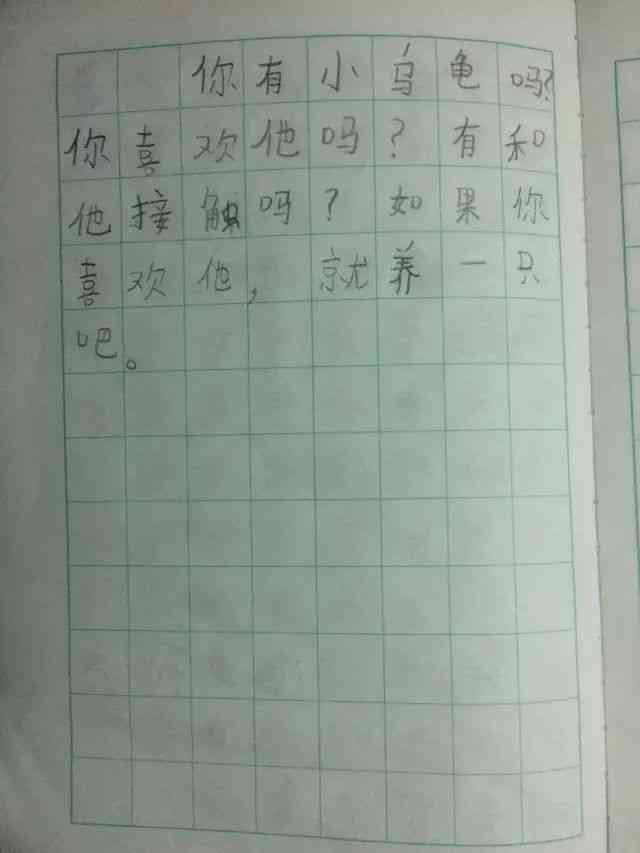 你有小乌龟吗?
你喜欢他吗?有和
他接触吗?如果你
喜欢他,就养一只
吧。